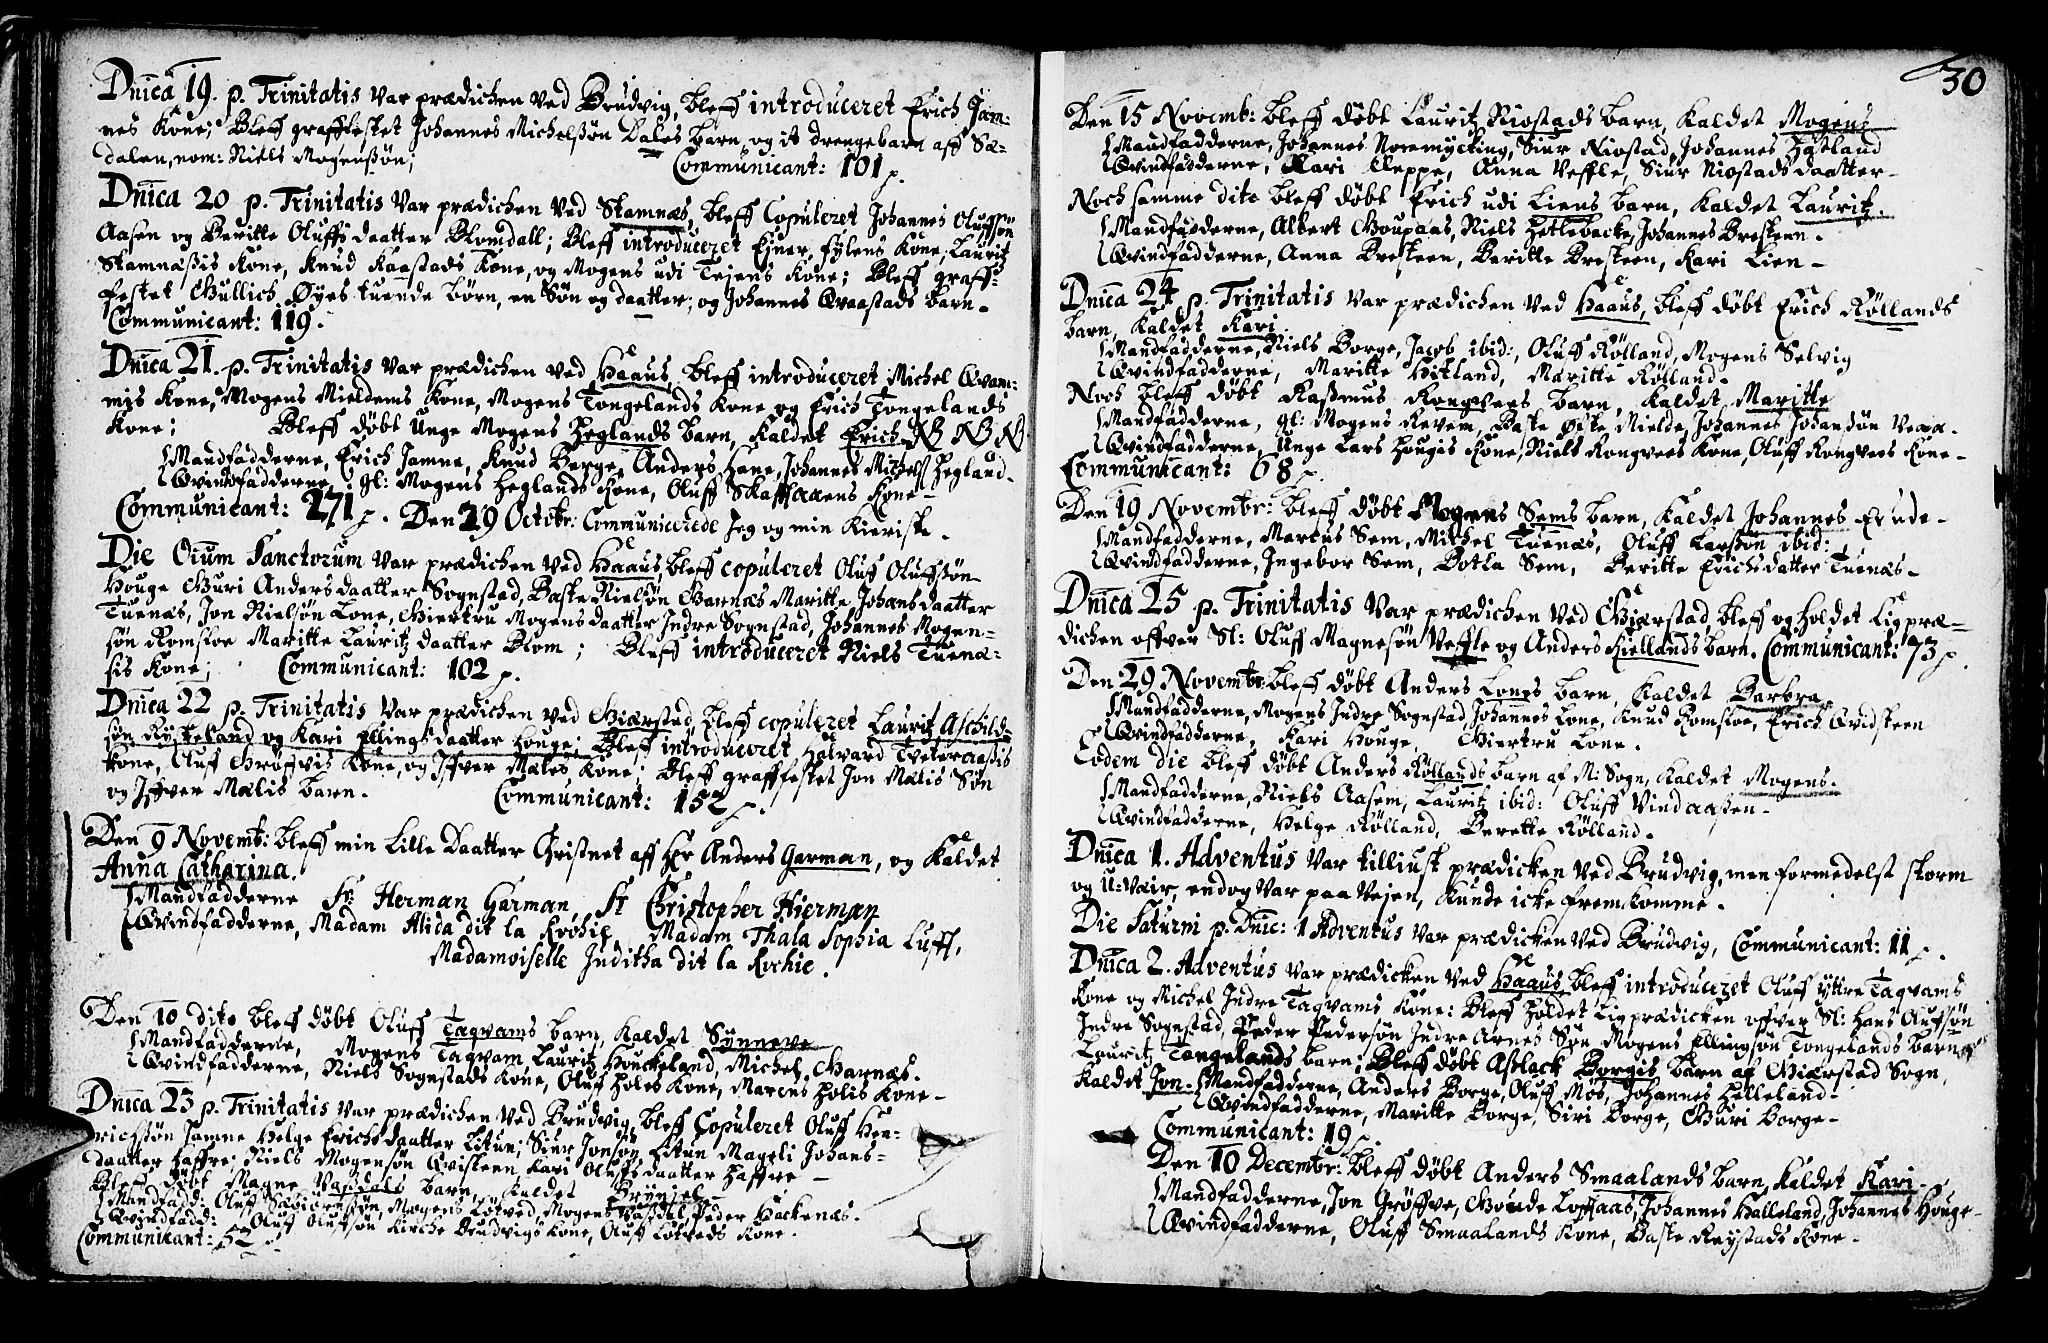 Dnica 19. p. Trinitatis var prædichen ved Brudvig, bleff introduceret Erich Jam:
nes Kone; Bleff grafffestet Johannes Michelssøn Dales barn, og it drengebarn aff Sæ-
dalen, nom: Niels Mogenssøn; Communicant: 101 p.
Dnica 20 p. Trinitatis var prædichen ved Stamnæs, bleff Copuleret Johannes Oluffsøn
Aasen og Beritte Oluffsdaatter Blomdall; Bleff introduceret Ejner Fylens Kone, Lauritz
Stamnæssis Kone, Knud Kaastads Kone, og Mogens udi Tejens Kone; Bleff graff-
festet Gullich Øyes tuende børn, en Søn og daatter; og Johannes Qvaastads barn.
Communicant: 119.
Dnica 21. p. Trinitatis var prædichen ved Haaus, bleff introduceret Michel Qvam:
mis Kone, Mogens Mieldems Kone, Mogens Tongelands Kone og Erich Tongelands
Kone; Bleff døbt Unge Mogens Heglands barn, Kaldet Erich NB NB NB
Mandfadderne, Erich Jamne, Knud Borge, Anders Hane, Johannes Michels Hegland.
Qvindfadderne, gl: Mogens Heglands Kone, Oluff Skafftaaens Kone-
Communicant: 171 p. Den 29 Octobr: Communicerede Jeg og min Kieriste.
Die Oium Sanctorum var prædichen ved Haaus, bleff copuleret Oluf Oluffssøn
Houge Guri Andersdaatter Sognstad, Baste Nielsøn Garnæs Maritte Johansdaatter
Tuenæs, Jon Nielsøn Lone, Giertru Mogensdaatter Indre Sognstad, Johannes Mogen-
søn Romsloe Maritte Lauritzdaatter Blom; Bleff introduceret Niels Tuenæ-
sis Kone; Communicant: 102 p.
Dnica 22 p. Trinitatis var prædichen ved Gjærstad, bleff copuleret Lauritz Aschild-
søn Rykeland og Kari Ellingsdaatter Houge; Bleff introduceret Halvard Tveteraassis
Kone, Oluf Grøsvis Kone, og Iffver Mæles Kone; Bleff graffestet Jon Mælis Søn
og Iffver Mælis barn. Communicant: 152 p.
Den 9 Novemb: bleff min Lille Daatter Christnet aff Hr Anders Garman, og Kaldet
Anna Catharina.
Mandfadderne Sr: Herman Garman, Sr Christopher Hierman
Qvindfadderne, Madam Alida dit la Rochie Madam Thala Sophia Luff,
Madamoiselle Juditha dit la Rochie.
Den 10 dito bleff døbt Oluff Tagvams barn, Kaldet Synneve
Mandfadderne, Mogens Tagvam, Lauritz Houckeland, Michel Garnæs.
Qvindfadderne, Niels Sognstads Kone, Oluff Holes Kone, Marcus Holis Kone-
Dnica 23 p. Trinitatis var prædichen ved Brudvig, bleff Copuleret Oluff Hen-
richssøn Jamne Helge Erichsdaatter Litun; Siur Jonsøn Litun Mageli Johans-
daatter Haffre; Niels Mogensøn Qvisteen Kari Olufsdaatter Haffre-
Bleff døbt Magne Vassdals barn, Kaldet Brynjel-
Mandfadd: Oluff Mogens Lotved, Mogens Vassdal, Peder Hackenæs.
Qvindfadd: Oluff Olufsøn Kirche Brudvigs Kone, Oluff Lotveds Kone.
Communicant: 52
30
Den 15 Novemb: bleff døbt Lauritz Niostads barn, Kaldet Mogens
Mandfadderne, Johannes Novemycking, Siur Niostad, Johannes Hatland
Qvindfadderne, Kari Kleppe, Anna Veffle, Siur Niostads daatter-
Noch samme dito bleff døbt Erich udi Liens barn, Kaldet Lauritz.
Mandfadderne, Albert Goupaas, Niels Hetlebacke, Johannes Bresteen.
Qvindfadderne, Anna Bresteen, Beritte Bresteen, Kari Lien-
Dnica 24 p. Trinitatis var prædichen ved Haaus, bleff døbt Erich Røllands
barn, Kaldet Kari.
Mandfadderne, Niels Borge, Jacob ibid:, Oluff Rølland, Mogens Selvig
Qvindfadderne, Maritte Hitland, Maritte Rølland.
Noch bleff døbt Rasmus Rongvees barn, Kaldet Maritte
Mandfadderne, gl: Mogens Revem, Baste Øste Mielde, Johannes Johansøn Veaa-
Qvindfadderne, Unge Lars Hougis Kone, Niels Rongvees Kone, Oluff Rongvees Kone-
Communicant: 68 p.
Den 19 Novembr: bleff døbt Mogens Sems barn, Kaldet Johannes
Mandfadderne, Marcus Sem, Michel Tuenæs, Oluff Larssøn ibid:
Qvindfadderne, Ingebor Sem, Botla Sem, Beritte Erichsdatter Tuenæs-
Dnica 25 p. Trinitatis var prædichen ved Gjærstad, bleff og holdet Ligpræ-
dichen offver Sl: Oluff Magnesøn Veffle og Anders Kiellands barn. Communicant: 73 p.
Den 29 Novembr: bleff døbt Anders Lones barn, Kaldet Barbra,
Mandfadderne, Mogens Indre Sognstad, Johannes Lone, Knud Romsloe, Erich Qvidsteen
Qvindfadderne, Kari Houge, Giertru Lone.
Eodem die bleff døbt Anders Røllands barn af M: Sogn, Kaldet Mogens.
Mandfadderne, Niels Aasem, Lauritz ibid: Oluff Vindaasen-
Qvindfadderne, Helge Rølland, Berette Rølland.
Dnica 1. Adventus var tilliust prædicken ved Brudvig, men formedelst storm
og u-væir, endog var paa Vejen, Kunde icke fremkomme.
Die Saturni p. Dnic: 1 Adventus var prædicken ved Brudvig, Communicant: 11 p.
Dnica 2. Adventus var prædicken ved Haaus, bleff introduceret Oluff Yttre Tagvams
Kone og Michel Indre Tagvams Kone: Bleff holdet Ligprædicken offver Sl: Hans Aufsøn
Indre Sognstad, Peder Pedersøn Indre Arnes Søn Mogens Ellingsøn Tongelands barn og
Lauritz Tongelands barn; Bleff døbt Aslack Borgis barn af Gjærstad Sogn,
Kaldet Jon. Mandfadderne, Anders Borge, Oluff Mos, Johannes Helleland-
Qvindfadderne, Maritte Borge, Siri Borge, Guri Borge-
Communicant: 19 p.
Den 10 Decembr: bleff døbt Anders Smaalands barn, Kaldet Kari-
Mandfadderne, Jon Grøsve, Goude Lofftaas, Johannes Halleland, Johannes Houge-
Qvindfadderne, Oluff Smaalands Kone, Baste Reystads Kone.